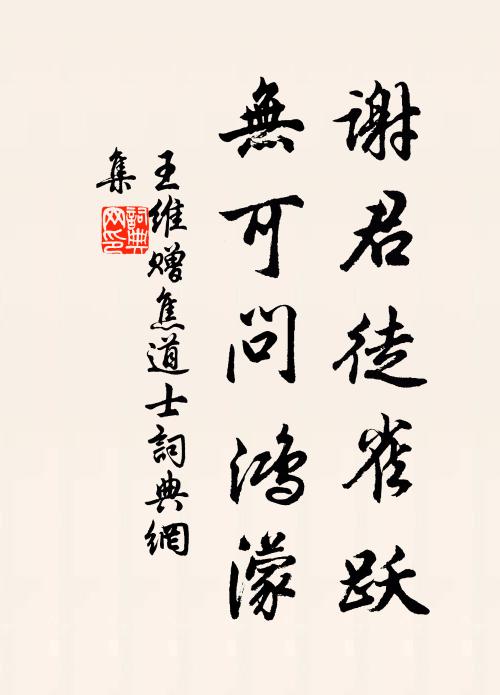 谢君徒雀跃
無可问鸿濛
王維赠焦道士詞典網
集
詞典
网印